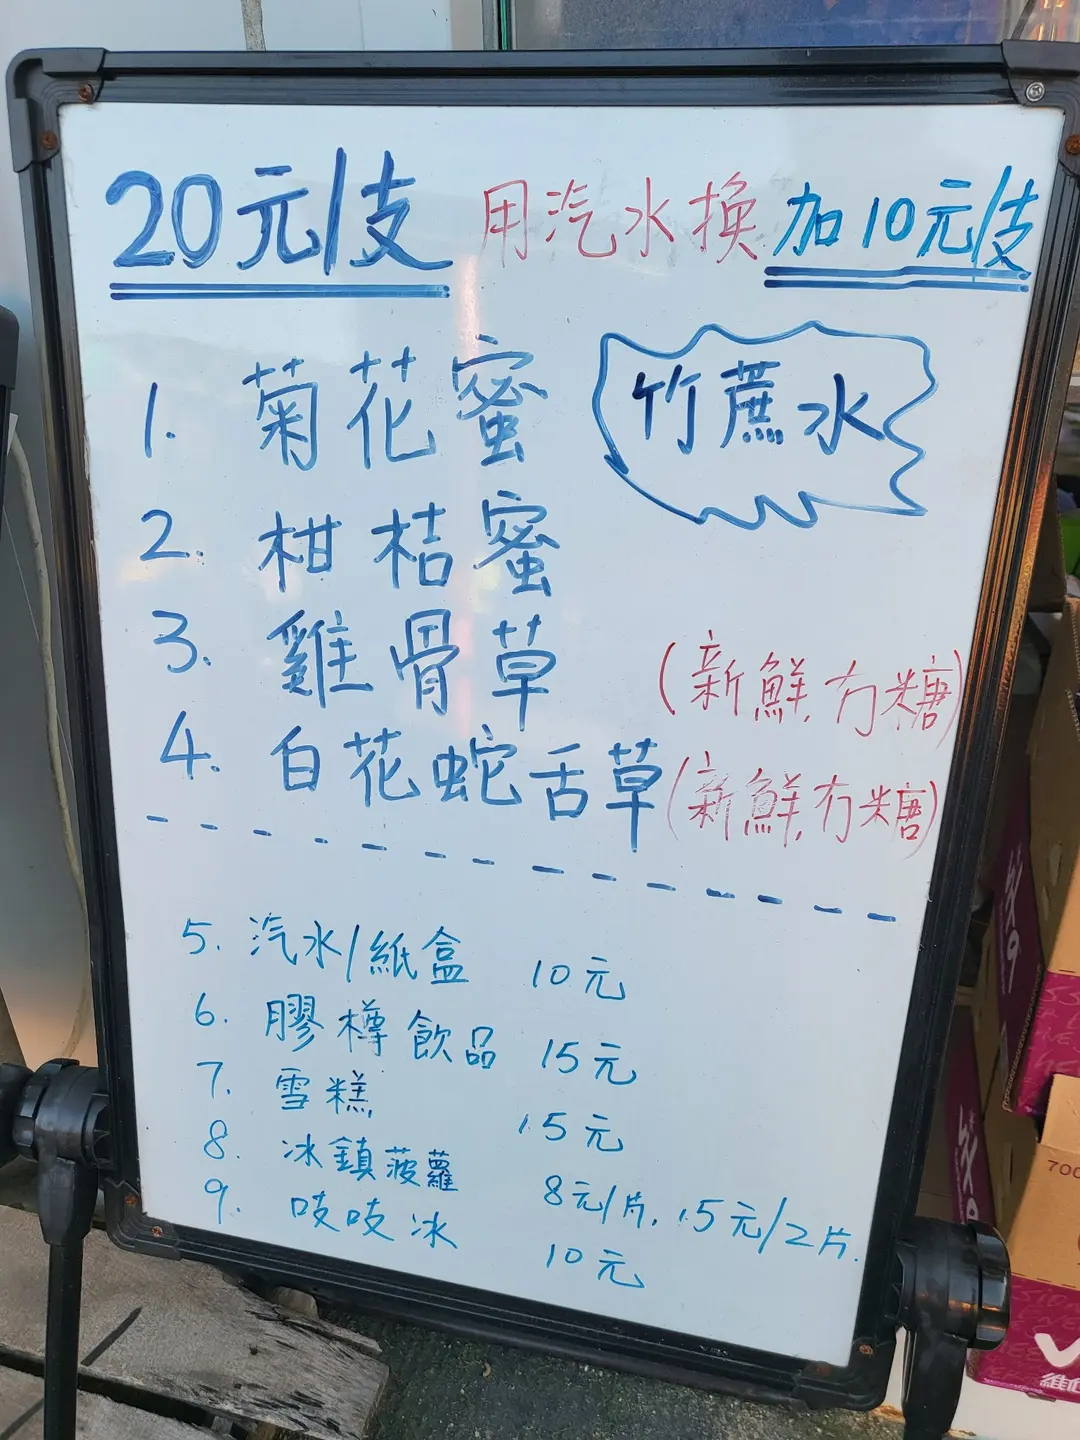 20元/支 用汽水換加10元/支
1. 菊花蜜
竹蔗水
2. 柑桔蜜
3. 雞骨草 (新鮮,冇糖)
4. 白花蛇舌草 (新鮮,冇糖)
5. 汽水/紙盒 10元
6. 膠樽飲品 15元
7. 雪糕 15元
8. 冰鎮菠蘿 8元/片, 15元/2片.
9. 吱吱冰 10元
700